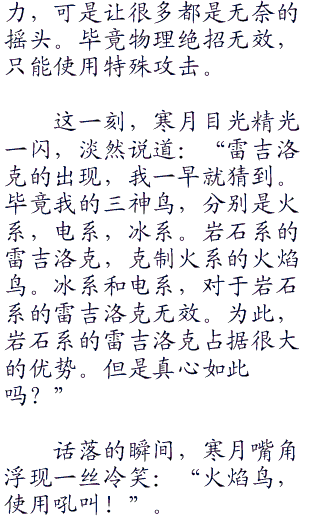 力，可是让很多都是无奈的
摇头。毕竟物理绝招无效，
只能使用特殊攻击。
这一刻，寒月目光精光
一闪，淡然说道：“雷吉洛
克的出现，我一早就猜到。
毕竟我的三神鸟，分别是火
系，电系，冰系。岩石系的
雷吉洛克，克制火系的火焰
鸟。冰系和电系，对于岩石
系的雷吉洛克无效。为此，
岩石系的雷吉洛克占据很大
的优势。但是真心如此
吗？”
话落的瞬间，寒月嘴角
浮现一丝冷笑：“火焰鸟，
使用吼叫！”。